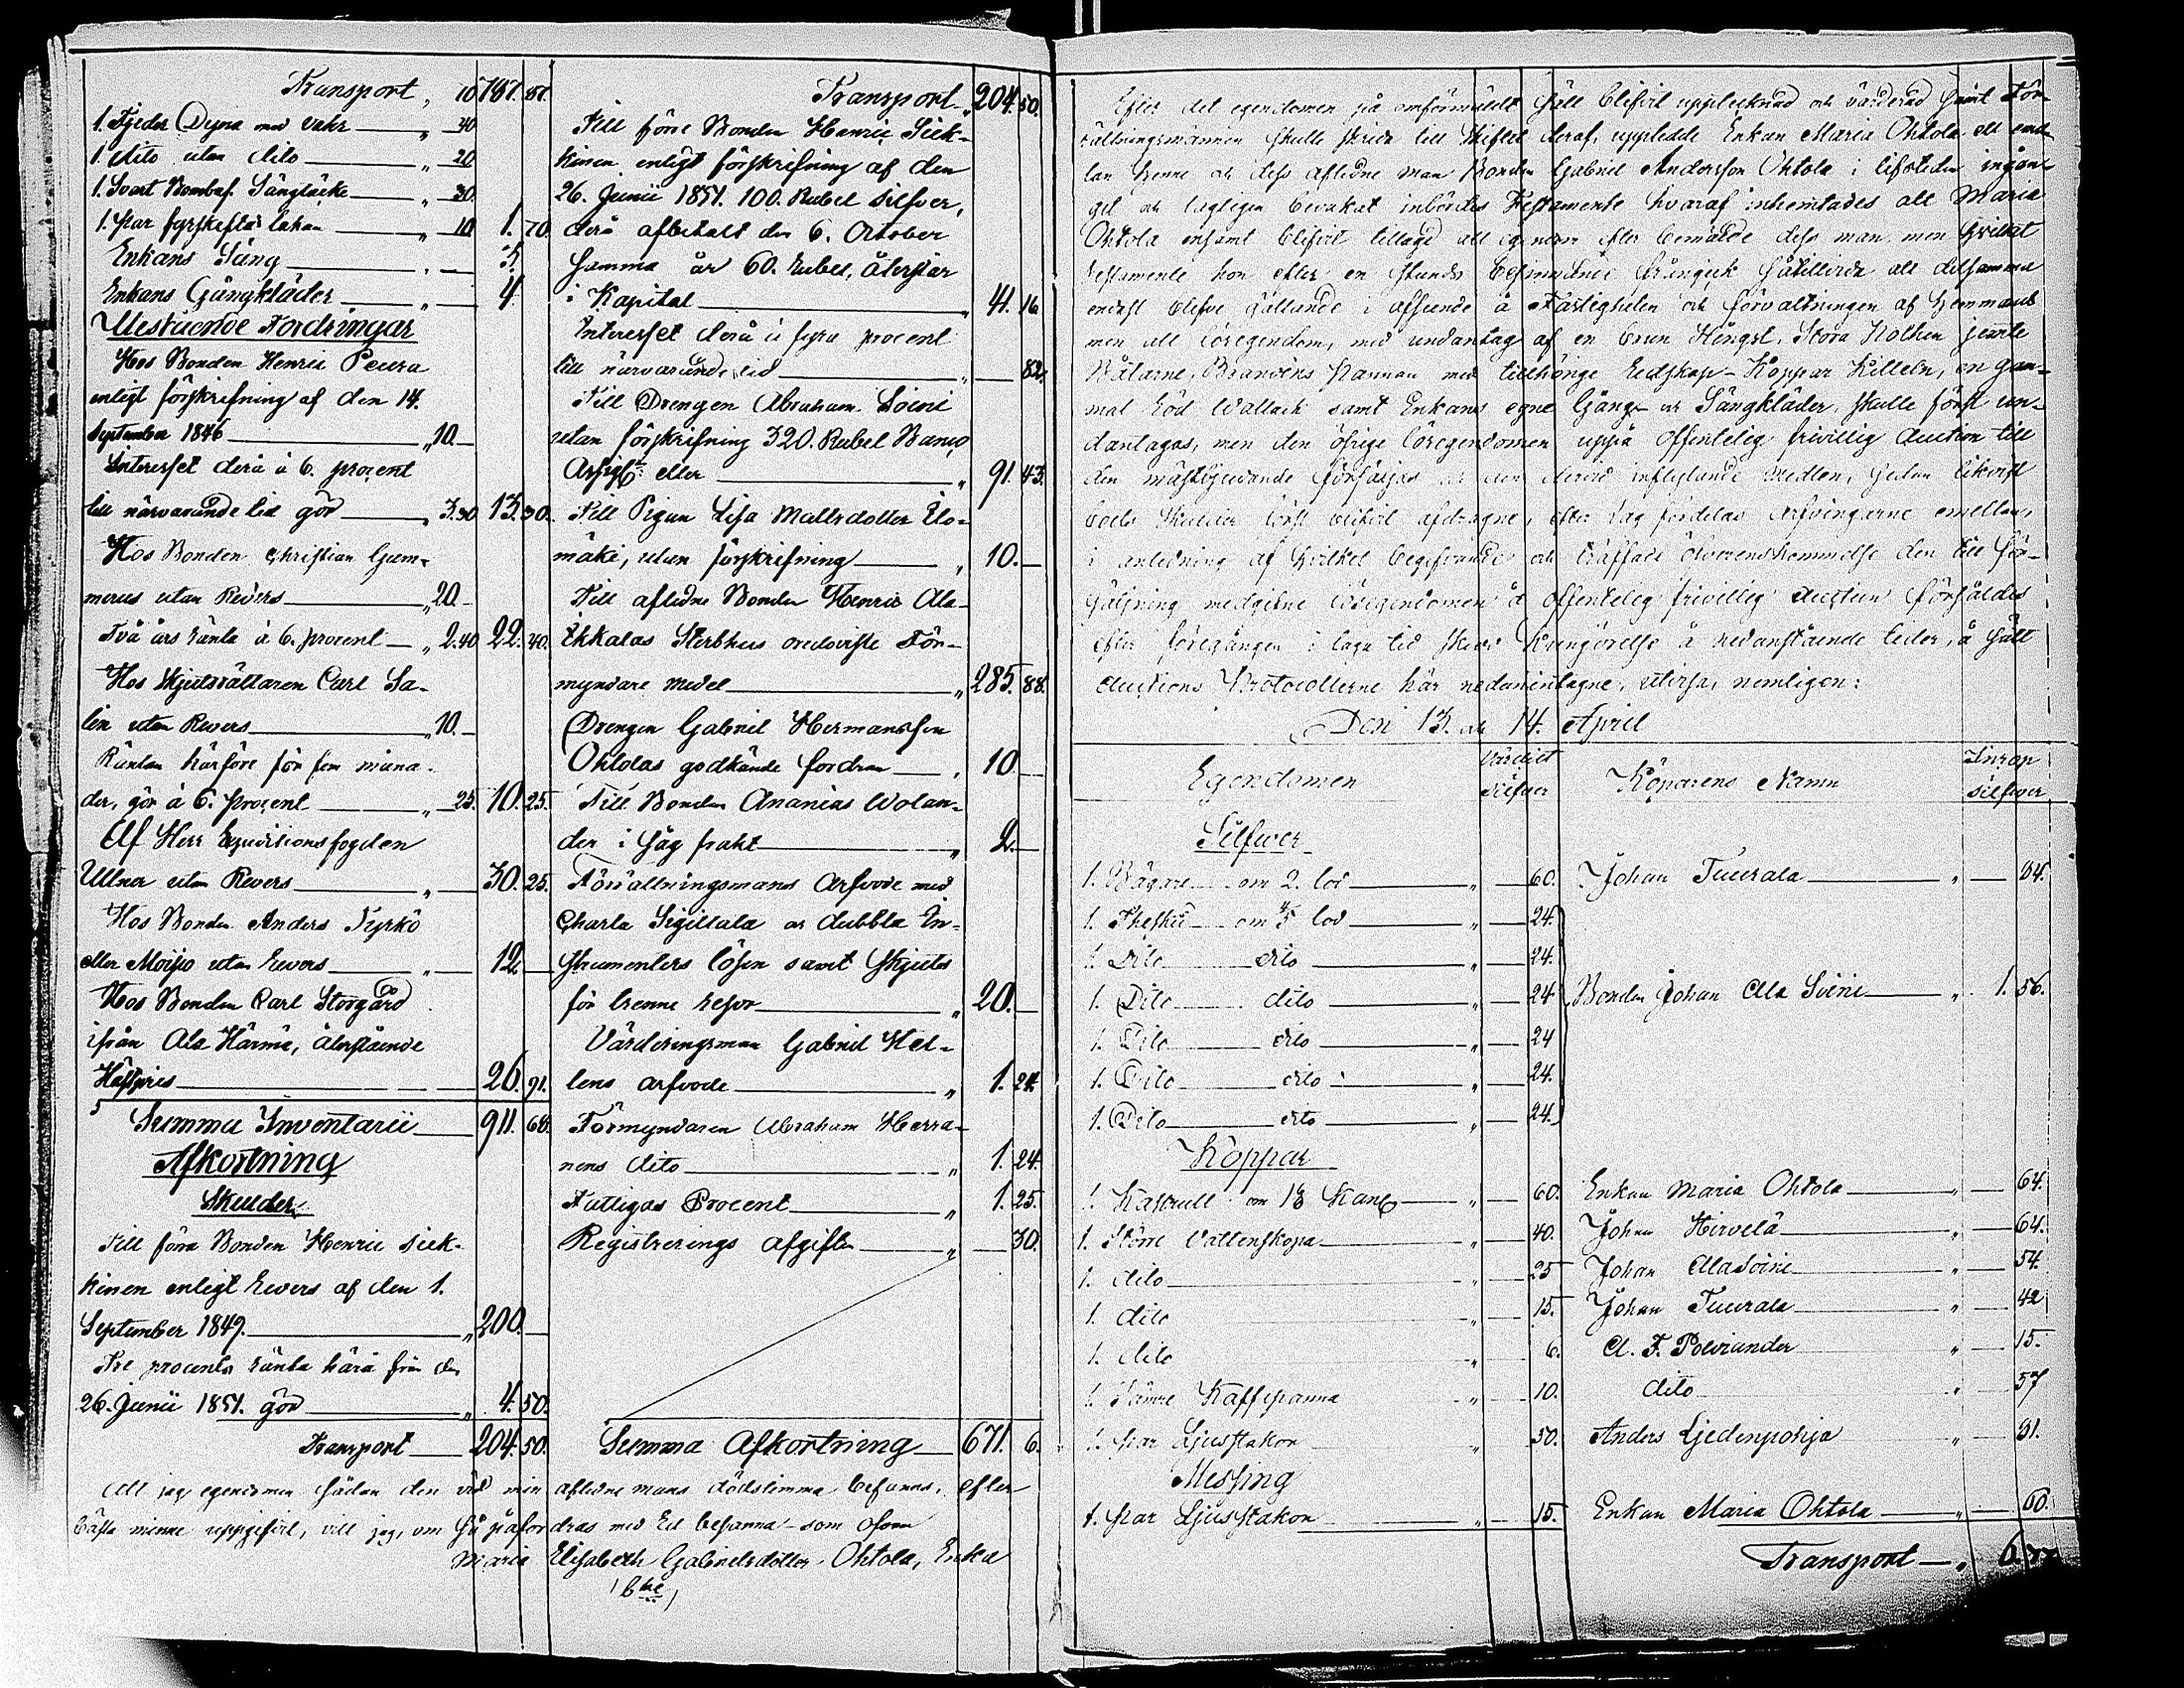 Transport „ 10 787. 87.
1. Fjeder Dyna med vahr „ 40
1. dito utan dito „ 20
1. Svart Bombas. Sängtäcke „ 30
1. par fyrskeftat lakan „ 10 1. 70.
Enkans Säng „ 3.
Enkans Gångkläder „ 4.
Utestående Fordringar
Hos Bonden Henric Peura
enligt förskrifning af den 14.
September 1846 „ 10.
Interesset derå à 6. procent
till närvarande tid gör „ 3.30 13. 30.
Hos Bonden Christian Gum-
merus utan Revers „ 20.
Två års ränta à 6. procent „ 2.40 22. 40.
Hos Skjutsrättaren Carl Sa-
lin utan Revers „ 10.
Räntan härföre för fem måna-
der, gör à 6. procent „ 25. 10. 25.
Af Herr Expeditionsfogden
Ullner utan Revers „ 30. 25.
Hos Bonden Anders Tyrkö
eller Moisio utan Revers „ 12.
Hos Bonden Carl Storgård
ifrån Ala Härmä, återstående
Hästpris 26. 91.
Summa Inventarii 911. 68.
Afkortning
Skulder
Till förra Bonden Henric Siik-
kinen enligt Revers af den 1.
September 1849. „ 200.
Tre procents ränta härå från den
26. Junii 1851. gör „ 4. 50.
Transport 204. 50.
Transport „ 204. 50.
Till förre Bonden Henric Siik-
kinen enligt förskrifning af den
26. Junii 1851. 100. Rubel Silfver,
derå afbetalt den 6. October
samma år 60. Rubel, återstår
i Kapital „ 41. 16.
Interesset derå à fyra procent
till närvarande tid „ 82.
Till Drengen Abraham Soini
utan förskrifning 320. Rubel Banco
Assign: eller „ 91. 43.
Till Pigan Lisa Mattsdotter Ylo-
mäki, utan förskrifning „ 10.
Till aflidne Bonden Henric Ala-
Ikkalas Sterbhus oredoviste För-
myndare medel „ 285. 88.
Drengen Gabriel Hermansson
Ohtolas godkände fordran „ 10.
Till Bonden Ananias Wolan-
der i Såg frakt „ 2.
Förrättningsmans Arfvode med
Charta Sigillata och dubbla In-
strumenters lösen samt skjuts
för trenne resor „ 20.
Värderingsman Gabriel Hel-
lens arfvode „ 1. 24.
Förmyndaren Abraham Herra-
nens dito „ 1. 24.
Fattigas Procent „ 1. 25.
Registrerings afgiften „ 30.
Summa Afkortning 671. 6.
Att jag egendomen sådan den vid min aflidne mans dödstimma befanns, efter
bästa minne uppgifvit, vill jag, om så påfordras med Ed besanna som ofvan
Maria Elisabeth Gabrielsdotter Ohtola, Enka
Efter det egendomen på omförmäldt sätt blifvit upptecknad och värderad samt För-
rättningsmännen skulle skrida till skiftet deraf, uppledde Enkan Maria Ohtola ett emel-
lan henne och dess aflidne man Bonden Gabriel Andersson Ohtola i lifstiden ingån-
get och lagligen bevakat inbördes Testamente hvaraf inhemtades att Maria
Ohtola ensamt blifvit tillagd all egendom efter bemälde dess man, men hvilket
Testamente hon efter en stunds besinnande frångick såtillvida att detsamma
endast blefve gällande i afseende å Fastigheten och förvaltningen af Hemmanet
men all lösegendom, med undantag af en brun Hingst, Stora Nothen jemte
Båtarne, Brandvins Pannan med tillhörige Redskap, Koppar Kitteln, en gam-
mal Röd Wallach samt Enkans egne Gång- och Sängkläder, skulle först un-
dantagas, men den öfrige lösegendomen uppå offentelig frivillig Auction till
den mästbjudande försäljas och den dervid inflytande medlen, sedan likväl
boets skulder först blifvit afdragne, efter lag fördelas Arfvingarne emellan,
i anledning af hvilket begifvande och träffade öfverenskommelse den till för-
säljning medgifne lösegendomen å offentelig frivillig Auction försåldes
efter föregången i laga tid skedd Kungörelse å nedanstående tider, å sätt
Auctions Protocollerne här nedanintagne, utvisa, nemligen:
Den 13. och 14. April
Egendomen Värdiet Silfver Köparens Namn Inrop Silfver
Silfver
1. Bägare om 2. lod „ 60. Johan Tuurala „ 84.
1. Thesked om 4/5 lod „ 24.
1. Dito dito „ 24.
1. Dito dito „ 24. Bonden Johan Ala Soini „ 1. 56.
1. Dito dito „ 24
1. Dito dito „ 24.
1. Dito dito „ 24.
Koppar
1. Kastrull om 1/8 Kan: „ 60. Enkan Maria Ohtola „ 64.
1. Större Vattenskopa „ 40. Johan Hirvelä „ 64.
1. dito „ 25 Johan AlaSoini „ 54.
1. dito „ 15. Johan Tuurala „ 42
1. dito „ 6. A. F. Polviander „ 15.
1. Sämre Kaffepanna „ 10. dito „ 57
1. par Ljusstakor „ 50. Anders Liedenpohja „ 81.
Messing
1. par Ljusstakor „ 15. Enkan Maria Ohtola „ 60.
Transport „ 6.